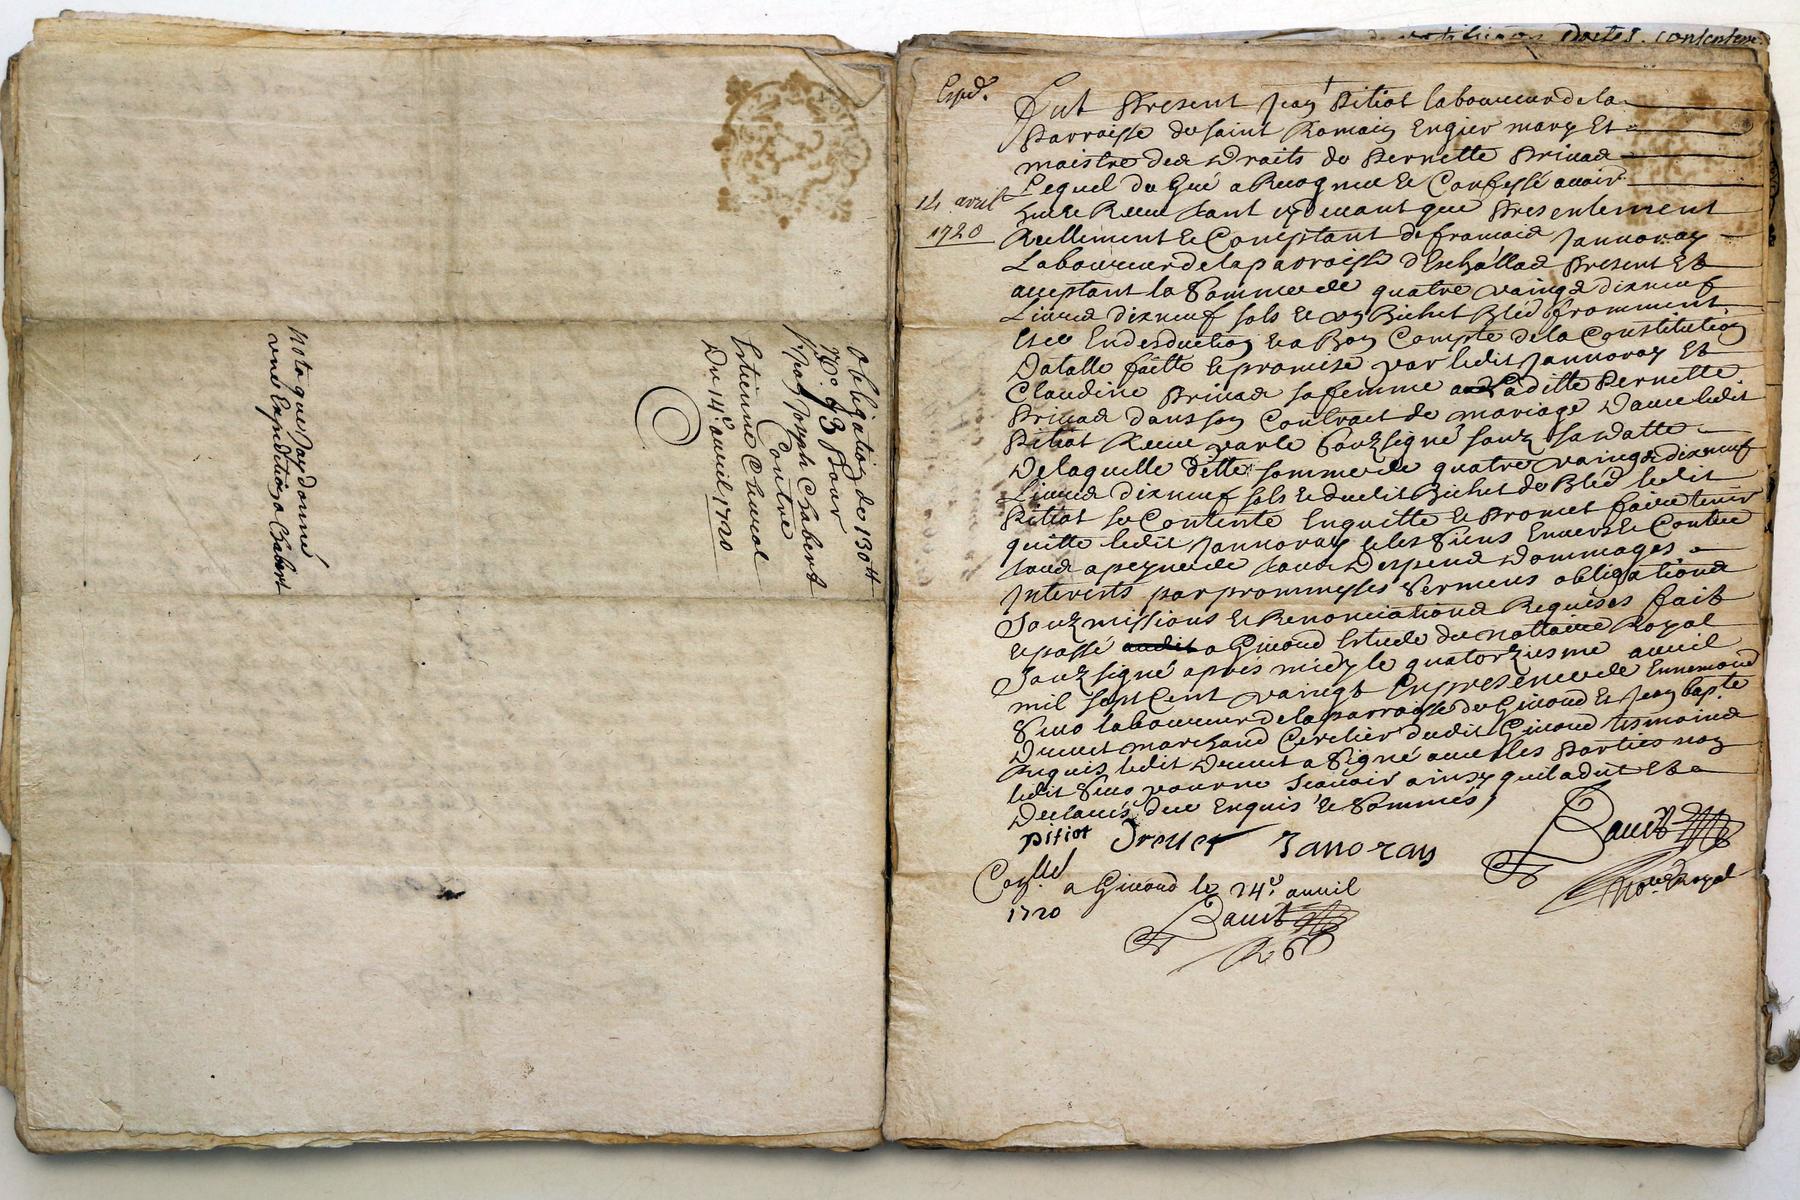 Obligation de 130ᵗᵗ
Nº. 93 pour
Joseph Chabert
Contre
Estienne Charcol
Du 14e. avril 1720
Nota que j'ay donné
une Expedition a Chabert
Exped.
14 avril
1720
Fut Present Jean Pitiot laboureur de la
Parroisse de saint Romain Engier mary Et
maistre des Droits de Pernette Privas
Lequel de Gré a Recognu & Confessé avoir
heu & Receu tant cydevant que Presentement
Reellement & Comptant de francois Jannoray
Laboureur de la parroisse d'Eschallas Present Et
acceptant la Somme de quatre vaingts dixneuf
Livres dixneuf sols & un Bichet Bled fromment
Et ce En desduction & a Bon Compte de la Constitution
Datalle faitte & promise par ledit Jannoray Et
Claudine Privas sa femme a Laditte Pernette
Privas dans son Contract de mariage Davec ledit
Pitiot Receu par le Souzsigné souz sa Datte
De laquelle ditte somme de quatre vaingts dixneuf
Livres dixneuf sols & dudit Bichet de Bled ledit
Pitiot se Contente Enquitte & Promet faire tenir
quitte ledit Jannoray & les Siens Envers & Contre
tous a peyne de tous Despens Dommages
Interests par prommesses Sermens obligations
Souzmissions & Renonciations Requises fait
& passé audit a Givord Estude du nottaire Royal
Souzsigné apres midy le quatorziesme avril
mil sept Cent vaingt En presence de Ennemond
laboureur de la parroisse de Givord & Jean bapte.
Drevet marchand Cerclier dudit Givord tesmoins
Requis ledit Drevet a Signé avec les Parties non
ledit pour ne scavoir ainsy quil a dit Et
Declaré de ce Enquis & Sommés
pitiot Drevet Janoray
Royal
Conllé a Givord le 24e. avril
1720